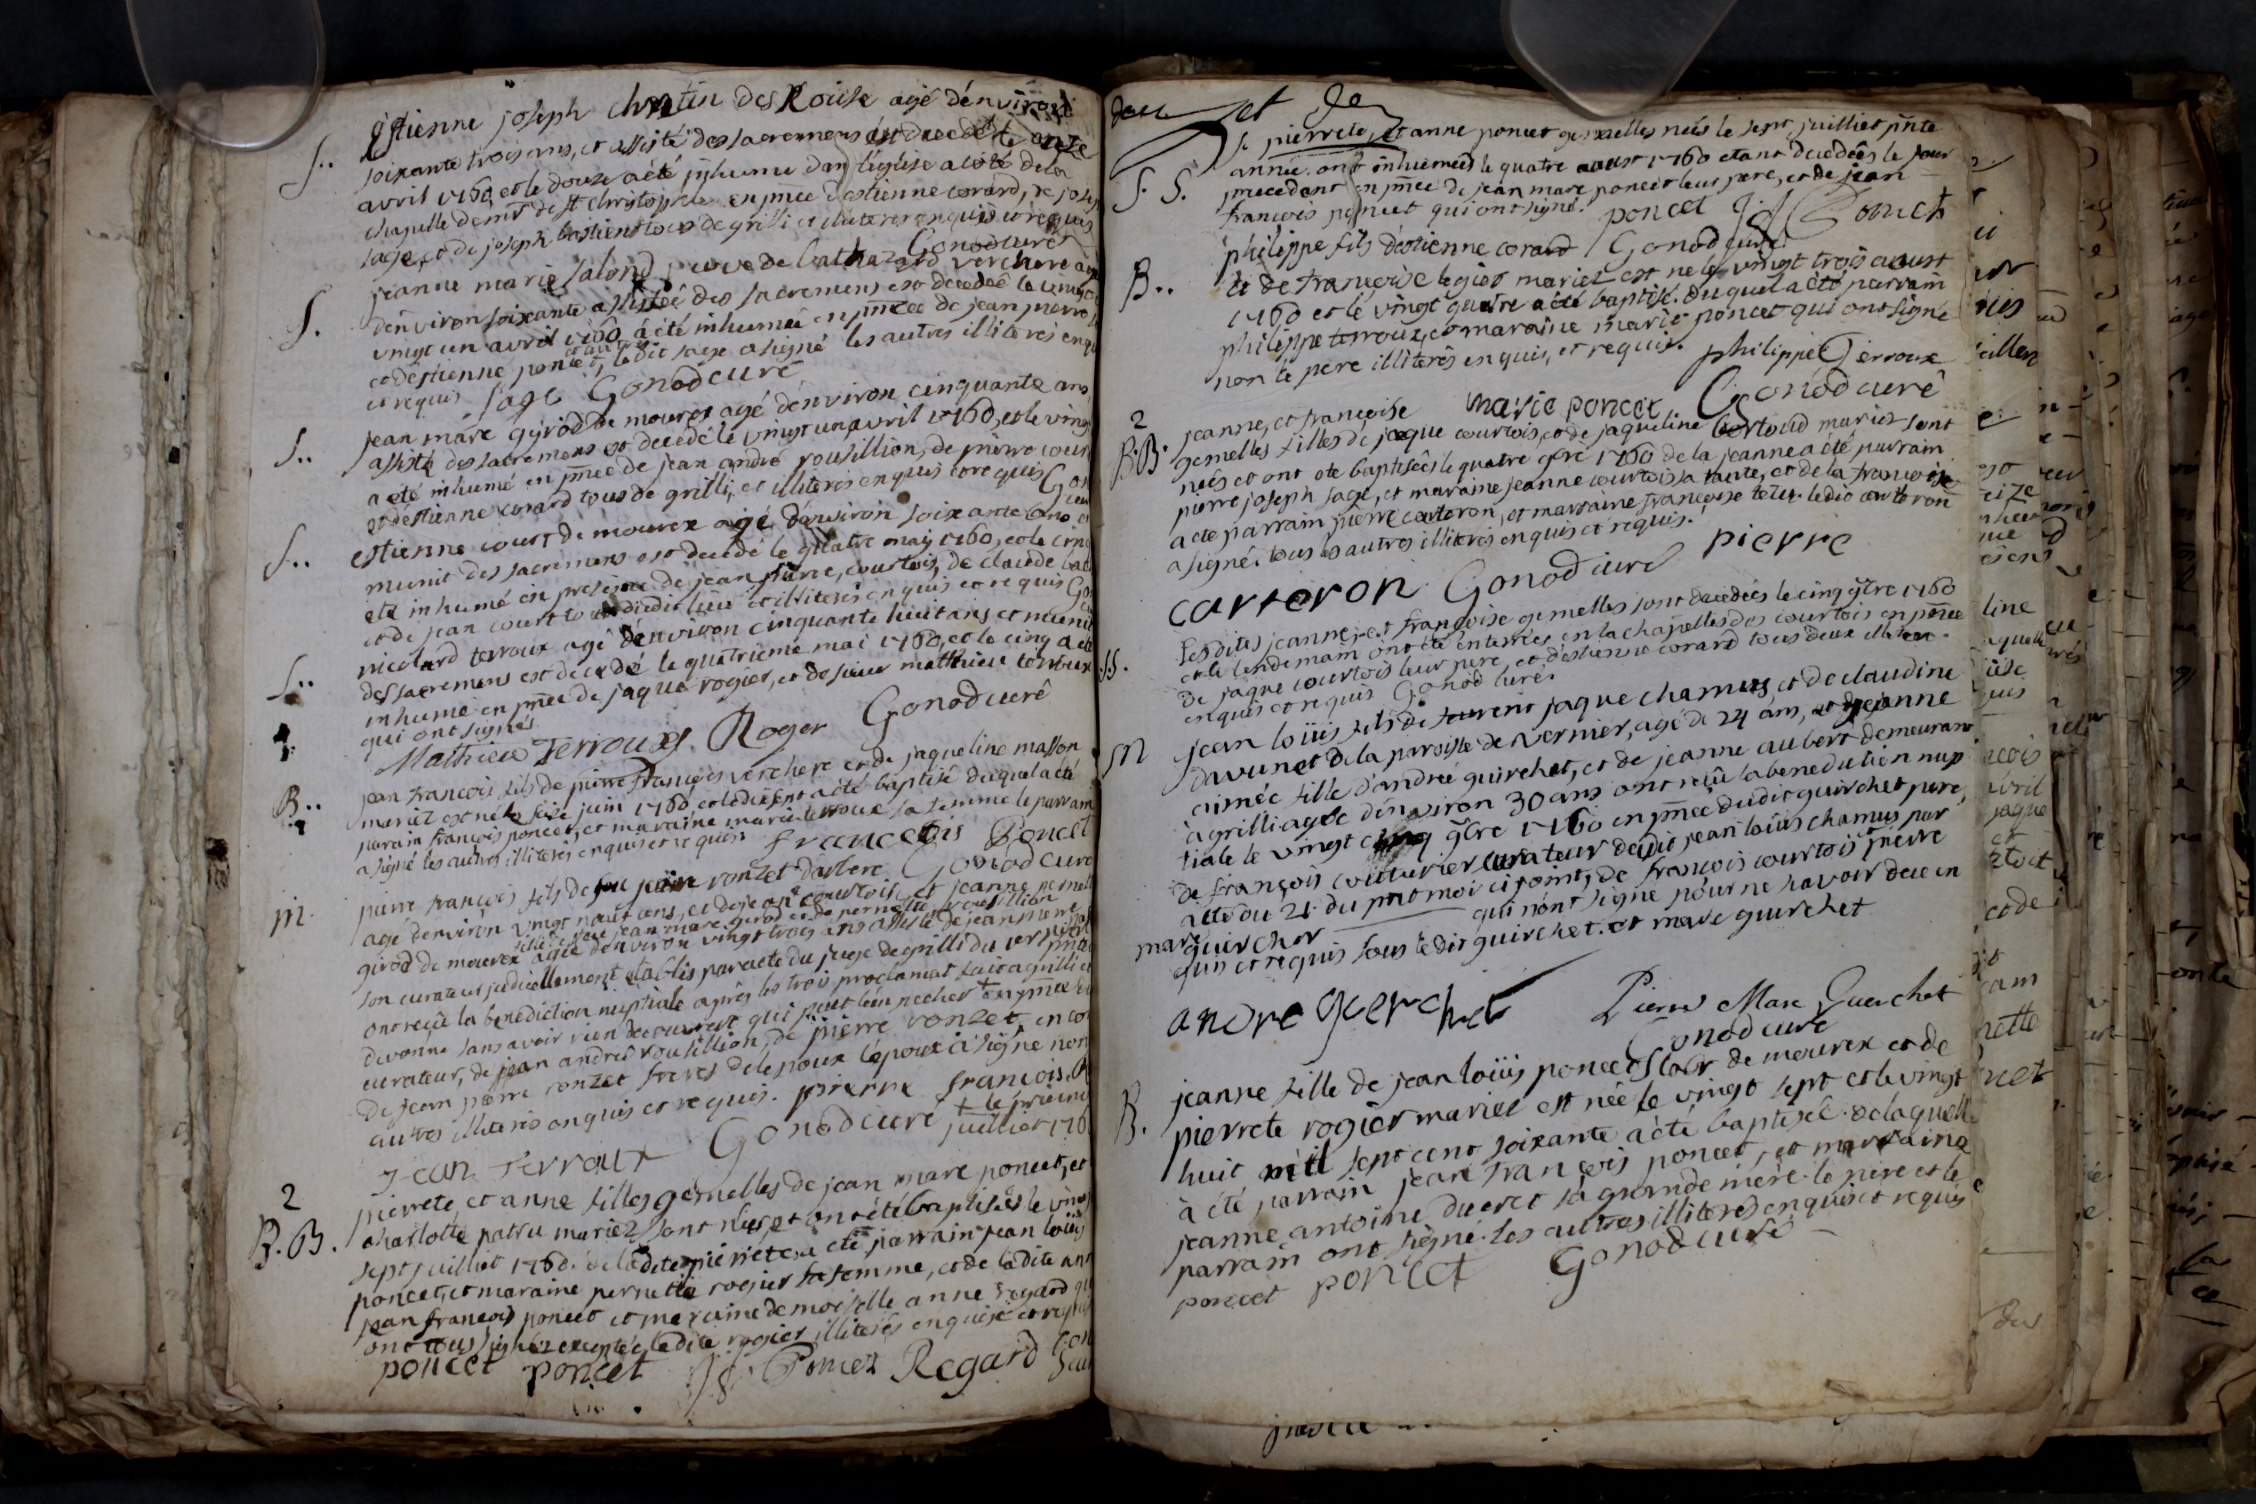 S.. Estienne joseph chretin des Rouse agé d'environ
soixante trois ans, et assisté des sacremens est decedé le onze
avril 1760 et le douze a été inhumé dans l'eglise a coté de la
chapelle de mr de st christophe en pñce d'estienne corard, de jose
sage, et de joseph bastien tous de grilli et illiteres enquis et requis
Gonod curé
S. jeanne marie salond veuve de balthazard verchere agée
d'environ soixante assistée des sacremens est decedée le vingt
vingt un avril 1760 a été inhumée en pñce de jean pierre
et d'estienne poncet, ledit sage a signé les autres illiteres enqu
et requis sage Gonod curé
S.. jean marc girod de mourex agé d'environ cinquante ans
assisté des sacremens est decedé le vingt un avril 1760, et le vingt
a eté inhumé en pñce de jean andré rousillion, de pierre cour
et d'estienne corard tous de grilli, et illiteres enquis et requis Gon
curé
S.. estienne court de mourex agé d'environ soixante ans, et
munit des sacremens est decedé le quatre may 1760, et le cinq
eté inhumé en presence de jean pierre, courtois, de claude
et de jean court tous dudit lieu et illiteres enquis et requis Go
S.. nicolard terroux agé d'environ cinquante huit ans et muni
des sacremens est decedé le quatrieme mai 1760, et le cinq a eté
inhumé en pñce de jaque rogier, et de sieur matthieu terroux
qui ont signés
Mathieu Terroux J. Roger Gonod curé
B.. jean francois fils de pierre françois verchere et de jaqueline masson
mariez est né le seize juin 1760 et ledit jour a été baptisé duquel a été
parain françois poncet, et maraine marie terroux sa femme le parrain
a signé les autres illiteres enquis et requis francois Poncet
Gonod curé
M. pierre françois fils de feu jean ronzet d'arbere
agé d'environ vingt neuf ans, et de jeanne courtois, et jeanne pernette
fille de feu jean marc girod et de pernette rousillion
girod de mourex agée d'environ vingt trois ans assistée de jean pierre
son curateur judiciellement etablis par acte du juge de grilli du 1er
ont reçû la benediction nuptiale après les trois proclamat faites a grilli et
divonne sans avoir rien decouvert qui peut l'en pecher + en pñce
curateur, de jean andré rousillion, de pierre ronzet, en co
de jean pierre ronzet freres de l'epoux l'epoux a signé non
autres illiteres enquis et requis. pierre francois R
+ le prem
jean Terroux Gonod curé juilliet 176
2
B.B. pierrete, et anne filles gemelles de jean marc poncet, et
charlotte patru mariez sont nées, et ont été baptisées le vingt
sept juilliet 1760. de ladite pierrete a eté parrain jean loüis
poncet, et maraine pernette rogier sa femme, et de ladite ann
jean françois poncet et maraine demoiselle anne regard qui
ont tous signés exceptée ladite rogier illiterés enquise et requi
poncet poncet J f Poncet Regard Gon
curé
S. S. pierrete, et anne poncet gemelles neés le sept juilliet pñte
année. ont inhumeés le quatre aoust 1760 etant decedées le jour
precedent en pñce de jean marc poncet leur pere, et de jean
françois poncet qui ont signé. poncet J f Poncet
Gonod curé
B.. philippe fils d'estienne corard
et de françoise legier mariez est né le vingt trois aoust
1760 et le vingt quatre a été baptisé. duquel a été parrain
philippe terroux, et maraine marie poncet qui ont signé
non le pere illiterés enquis, et requis. philippe Terroux
marie poncet Gonod curé
2
B.B. jeanne, et françoise
gemelles filles de jaque courtois, et de jaqueline bertoud mariez sont
neés et ont eté baptiseés le quatre 9bre 1760 de la jeanne a été parrain
pierre joseph sage, et maraine jeanne courtois sa tante, et de la françoise
a été parrain pierre carteron, et marraine françoise tetu. ledit carteron
a signé. tous les autres illiteres enquis et requis.
carteron Gonod curé pierre
SS. lesdites jeanne, et françoise gemelles sont decedées le cinq 9bre 1760
et le lendemain ont été enterrées en la chapelle des courtois en pñce
de jaque courtois leur pere, et d'estienne corard tous deux illiteres
enquis et requis Gonod curé.
M jean loüis fils de jaque chamus, et de claudine
davunet de la paroisse de vernier, agé de 24 ans, et jeanne
aimée fille d'andré guirchet, et de jeanne aubert demeurant
à grilli agée d'environ 30 ans ont reçû la benediction nup
tiale le vingt cinq 9bre 1760 en pñce dudit guirchet pere,
de françois couturier curateur dudit jean loüis chamus par
acte du 21 du pñt moi ci joint, de françois courtois pierre
marc guirchet qui n'ont signé pour ne savoir de ce en
quis et requis sous ledit guirchet. et marc guirchet
andre guerchet Pierre Marc Guerchet
Gonod curé
B. jeanne fille de jean loüis poncet de mourex et de
pierrete rogier mariez est née le vingt sept et le vingt
huit mill sept cent soixante à été baptisée. de laquelle
à été parrain jean françois poncet, et marraine
jeanne antoine ducret sa grande mére. le pére et le
parrain ont signé. les autres illiteres enquis et requis
poncet poncet Gonod curé